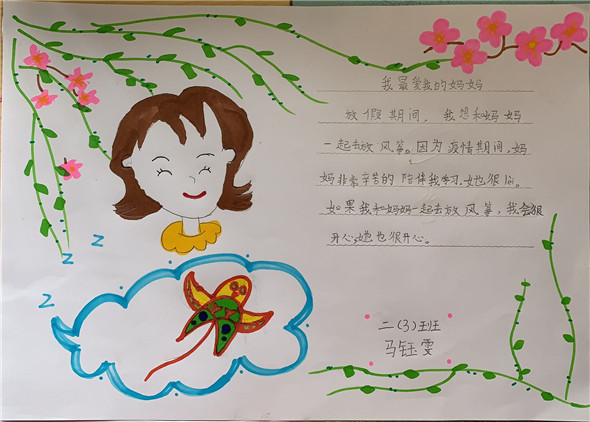 我最爱我的妈妈
放假期间，我想和妈妈
一起去放风筝。因为疫情期间，妈
妈非常辛苦的陪伴我学习，她也很
如果我和妈妈一起去放风筝，我会很
开心，她也很开心。
二（3）班
马钰雯
z
z